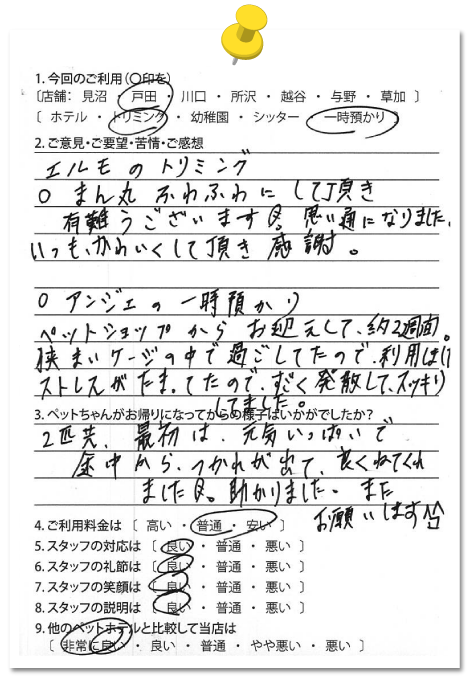 1. 今回のご利用(〇印を)
〔店舗: 見沼 ・ 戸田 ・ 川口 ・ 所沢 ・ 越谷 ・ 与野 ・ 草加 〕
〔 ホテル ・ トリミング ・ 幼稚園 ・ シッター ・ 一時預かり 〕
2. ご意見・ご要望・苦情・ご感想
エルモのトリミング
○ まん丸 ふわふわに して頂き
有難うございます。思い通になりました、
いつも、かわいくして頂き 感謝。
○ アンジェの一時預かり
ペットショップから お迎えして、約2週間。
狭まいケージの中で過ごしてたので、利用
ストレスがたまってたので、すごく発散して、スッキリ
してました。
3. ペットちゃんがお帰りになってからの様子はいかがでしたか?
2匹共、最初は、元気いっぱいで
途中から、つかれが出て、良くねてくれ
ました。助かりました。また
お願いします^^
4. ご利用料金は 〔 高い ・ 普通 ・ 安い 〕
5. スタッフの対応は 〔 良い ・ 普通 ・ 悪い 〕
6. スタッフの礼節は 〔 良い ・ 普通 ・ 悪い 〕
7. スタッフの笑顔は 〔 良い ・ 普通 ・ 悪い 〕
8. スタッフの説明は 〔 良い ・ 普通 ・ 悪い 〕
9. 他のペットホテルと比較して当店は
〔 非常に良い ・ 良い ・ 普通 ・ やや悪い ・ 悪い 〕